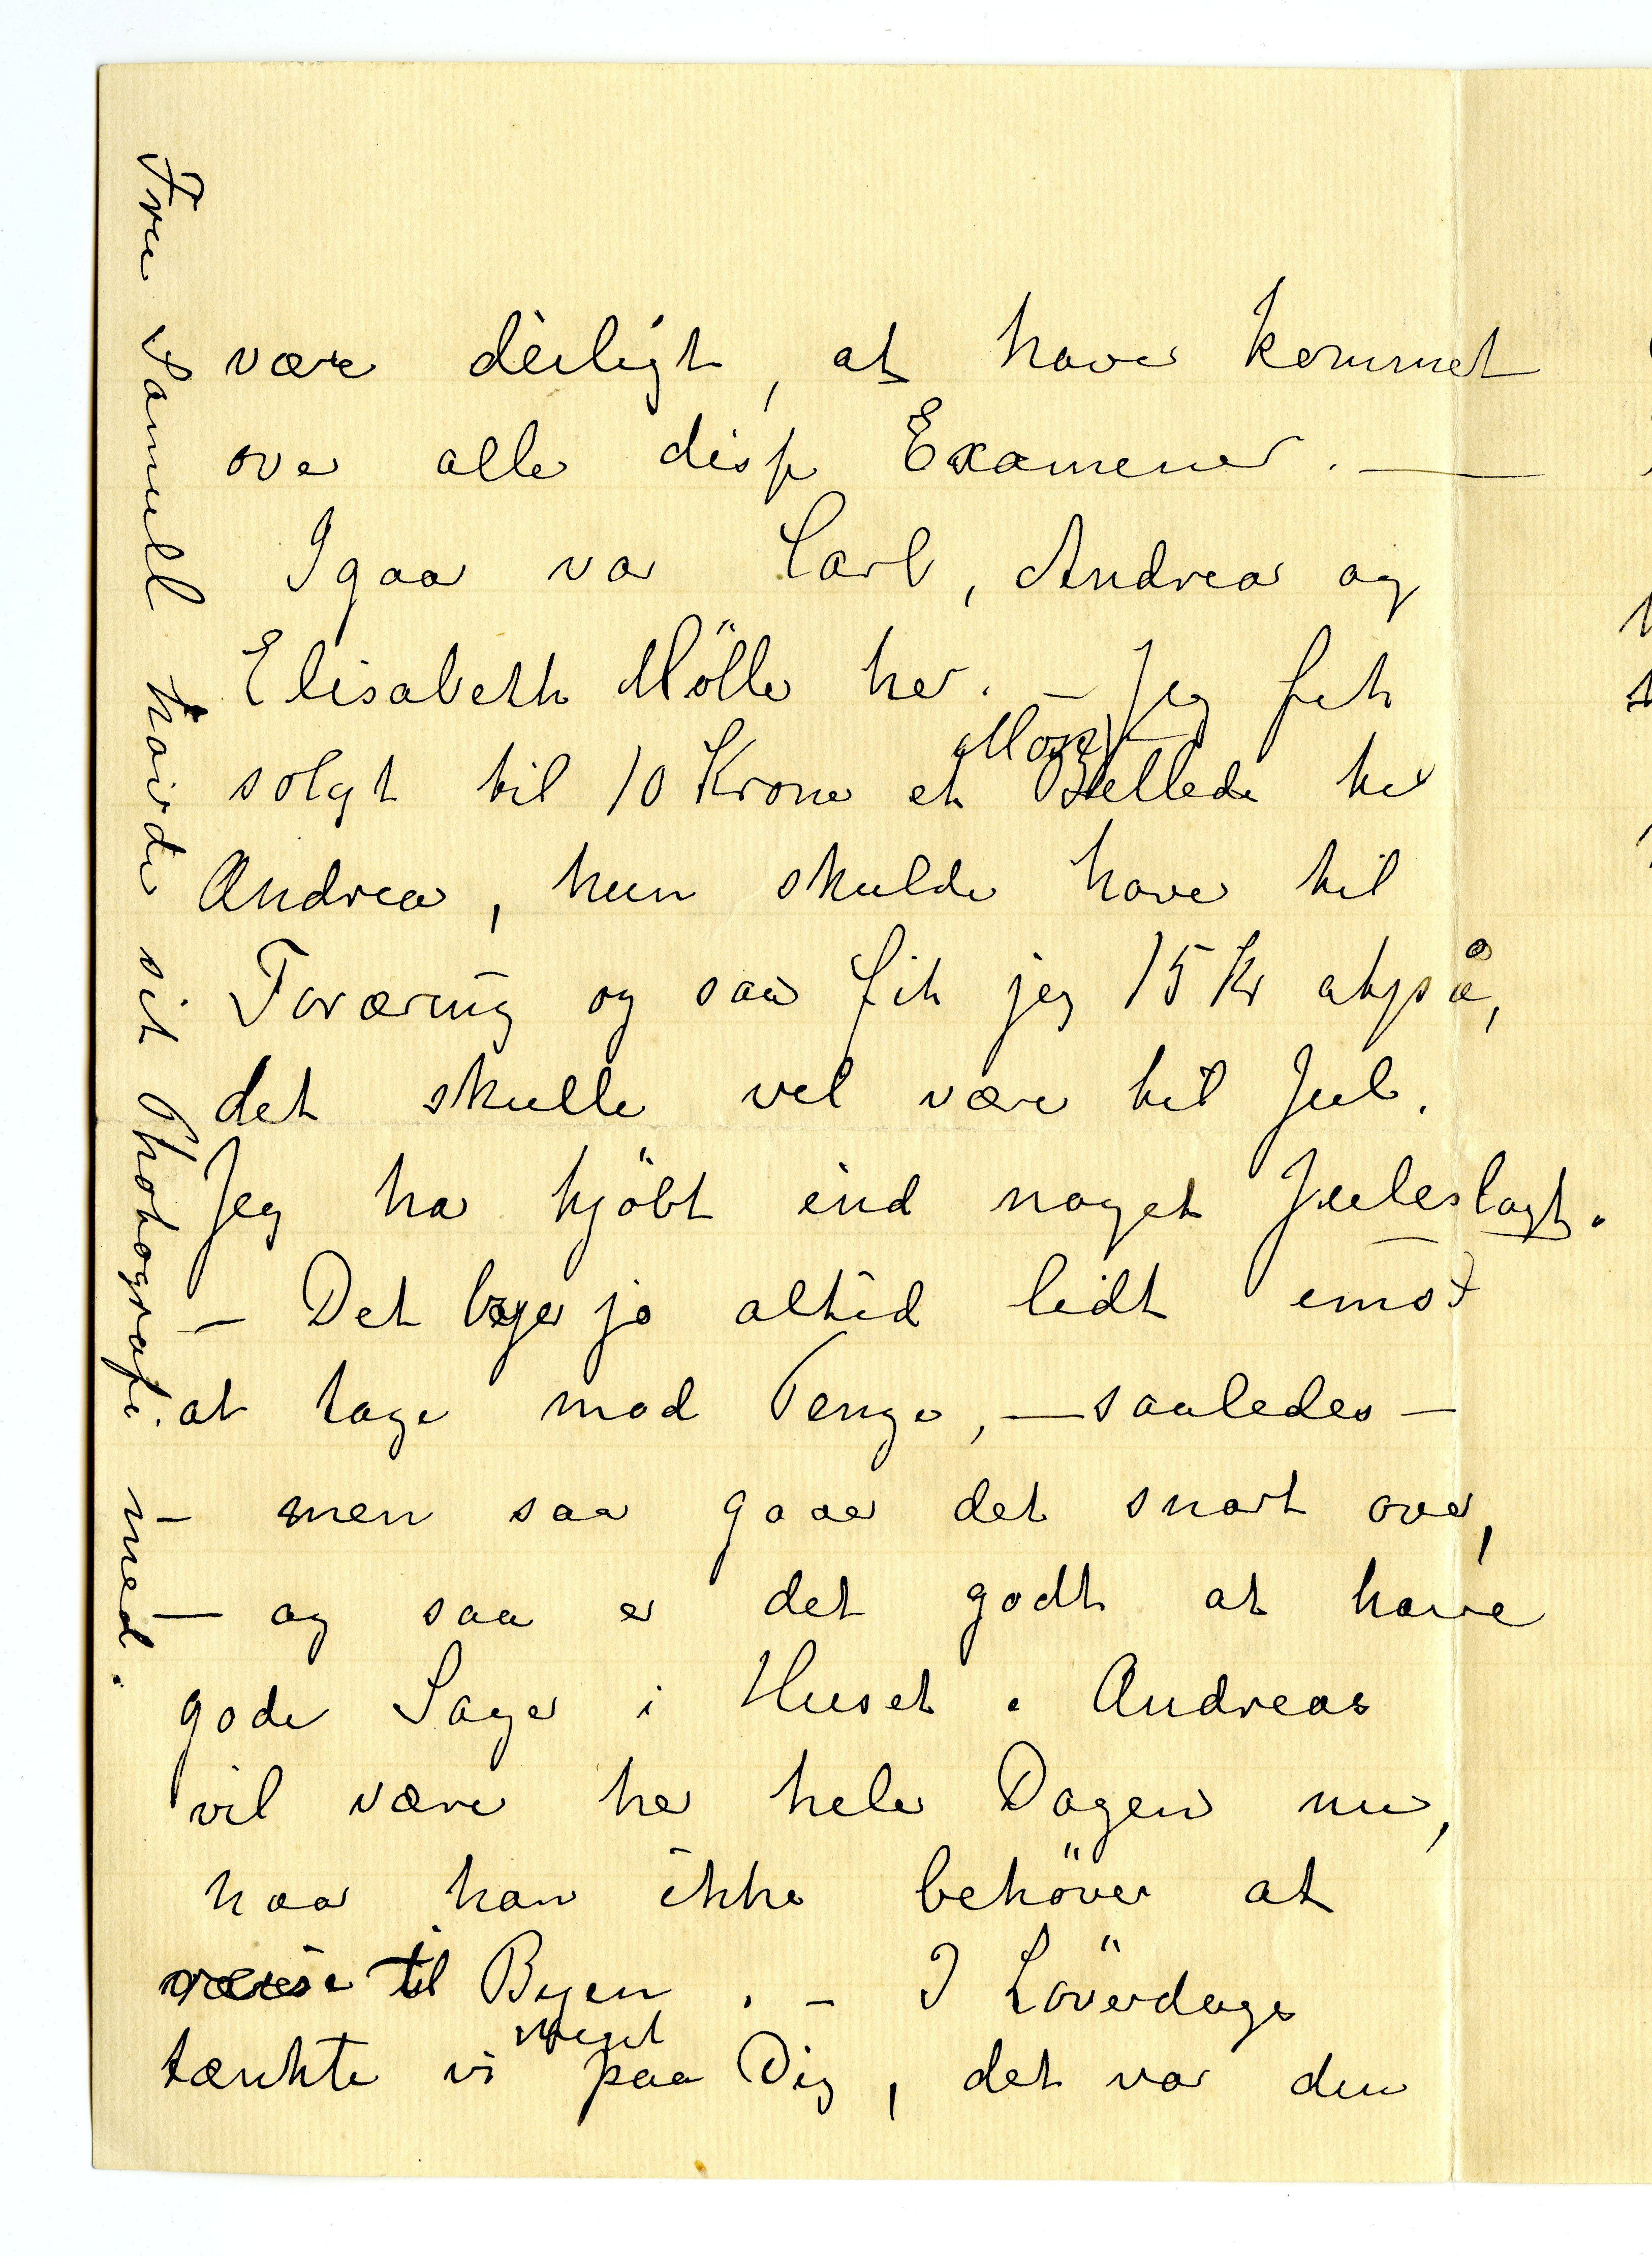 være deiligt, at have kommet
over alle disse Examener. —
Igaar var Carl, Andrea og
Elisabeth Möller her. — Jeg fik
solgt til 10 Kroner et Billede til
Andrea, hun skulde have til
Foræring og saa fik jeg 15 Kr atpå,
det skulle vel være til Jul.
Jeg har kjöbt ind noget Juleslagt.
— Det byer jo altid lidt imod
at tage mod Penge, — saaledes —
— men saa gaaer det snart over,
— og saa er det godt at have
gode Sager i Huset. Andreas
vil være her hele Dagen nu,
naar han ikke behöver at
til Byen. — I Löverdags
meget
tænkte vi paa Dig, det var den
Fru Samuel havde sit Photografi med.